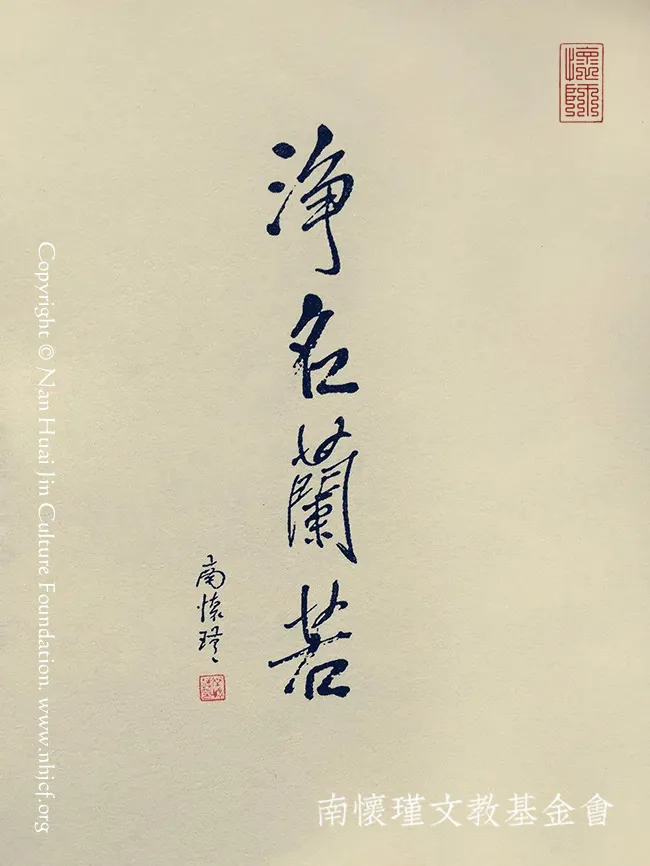 懷師
淨名蘭若
南懷瑾
Copyright © Nan Huai Jin Culture Foundation. www.nhjcf.org
南懷瑾文教基金會